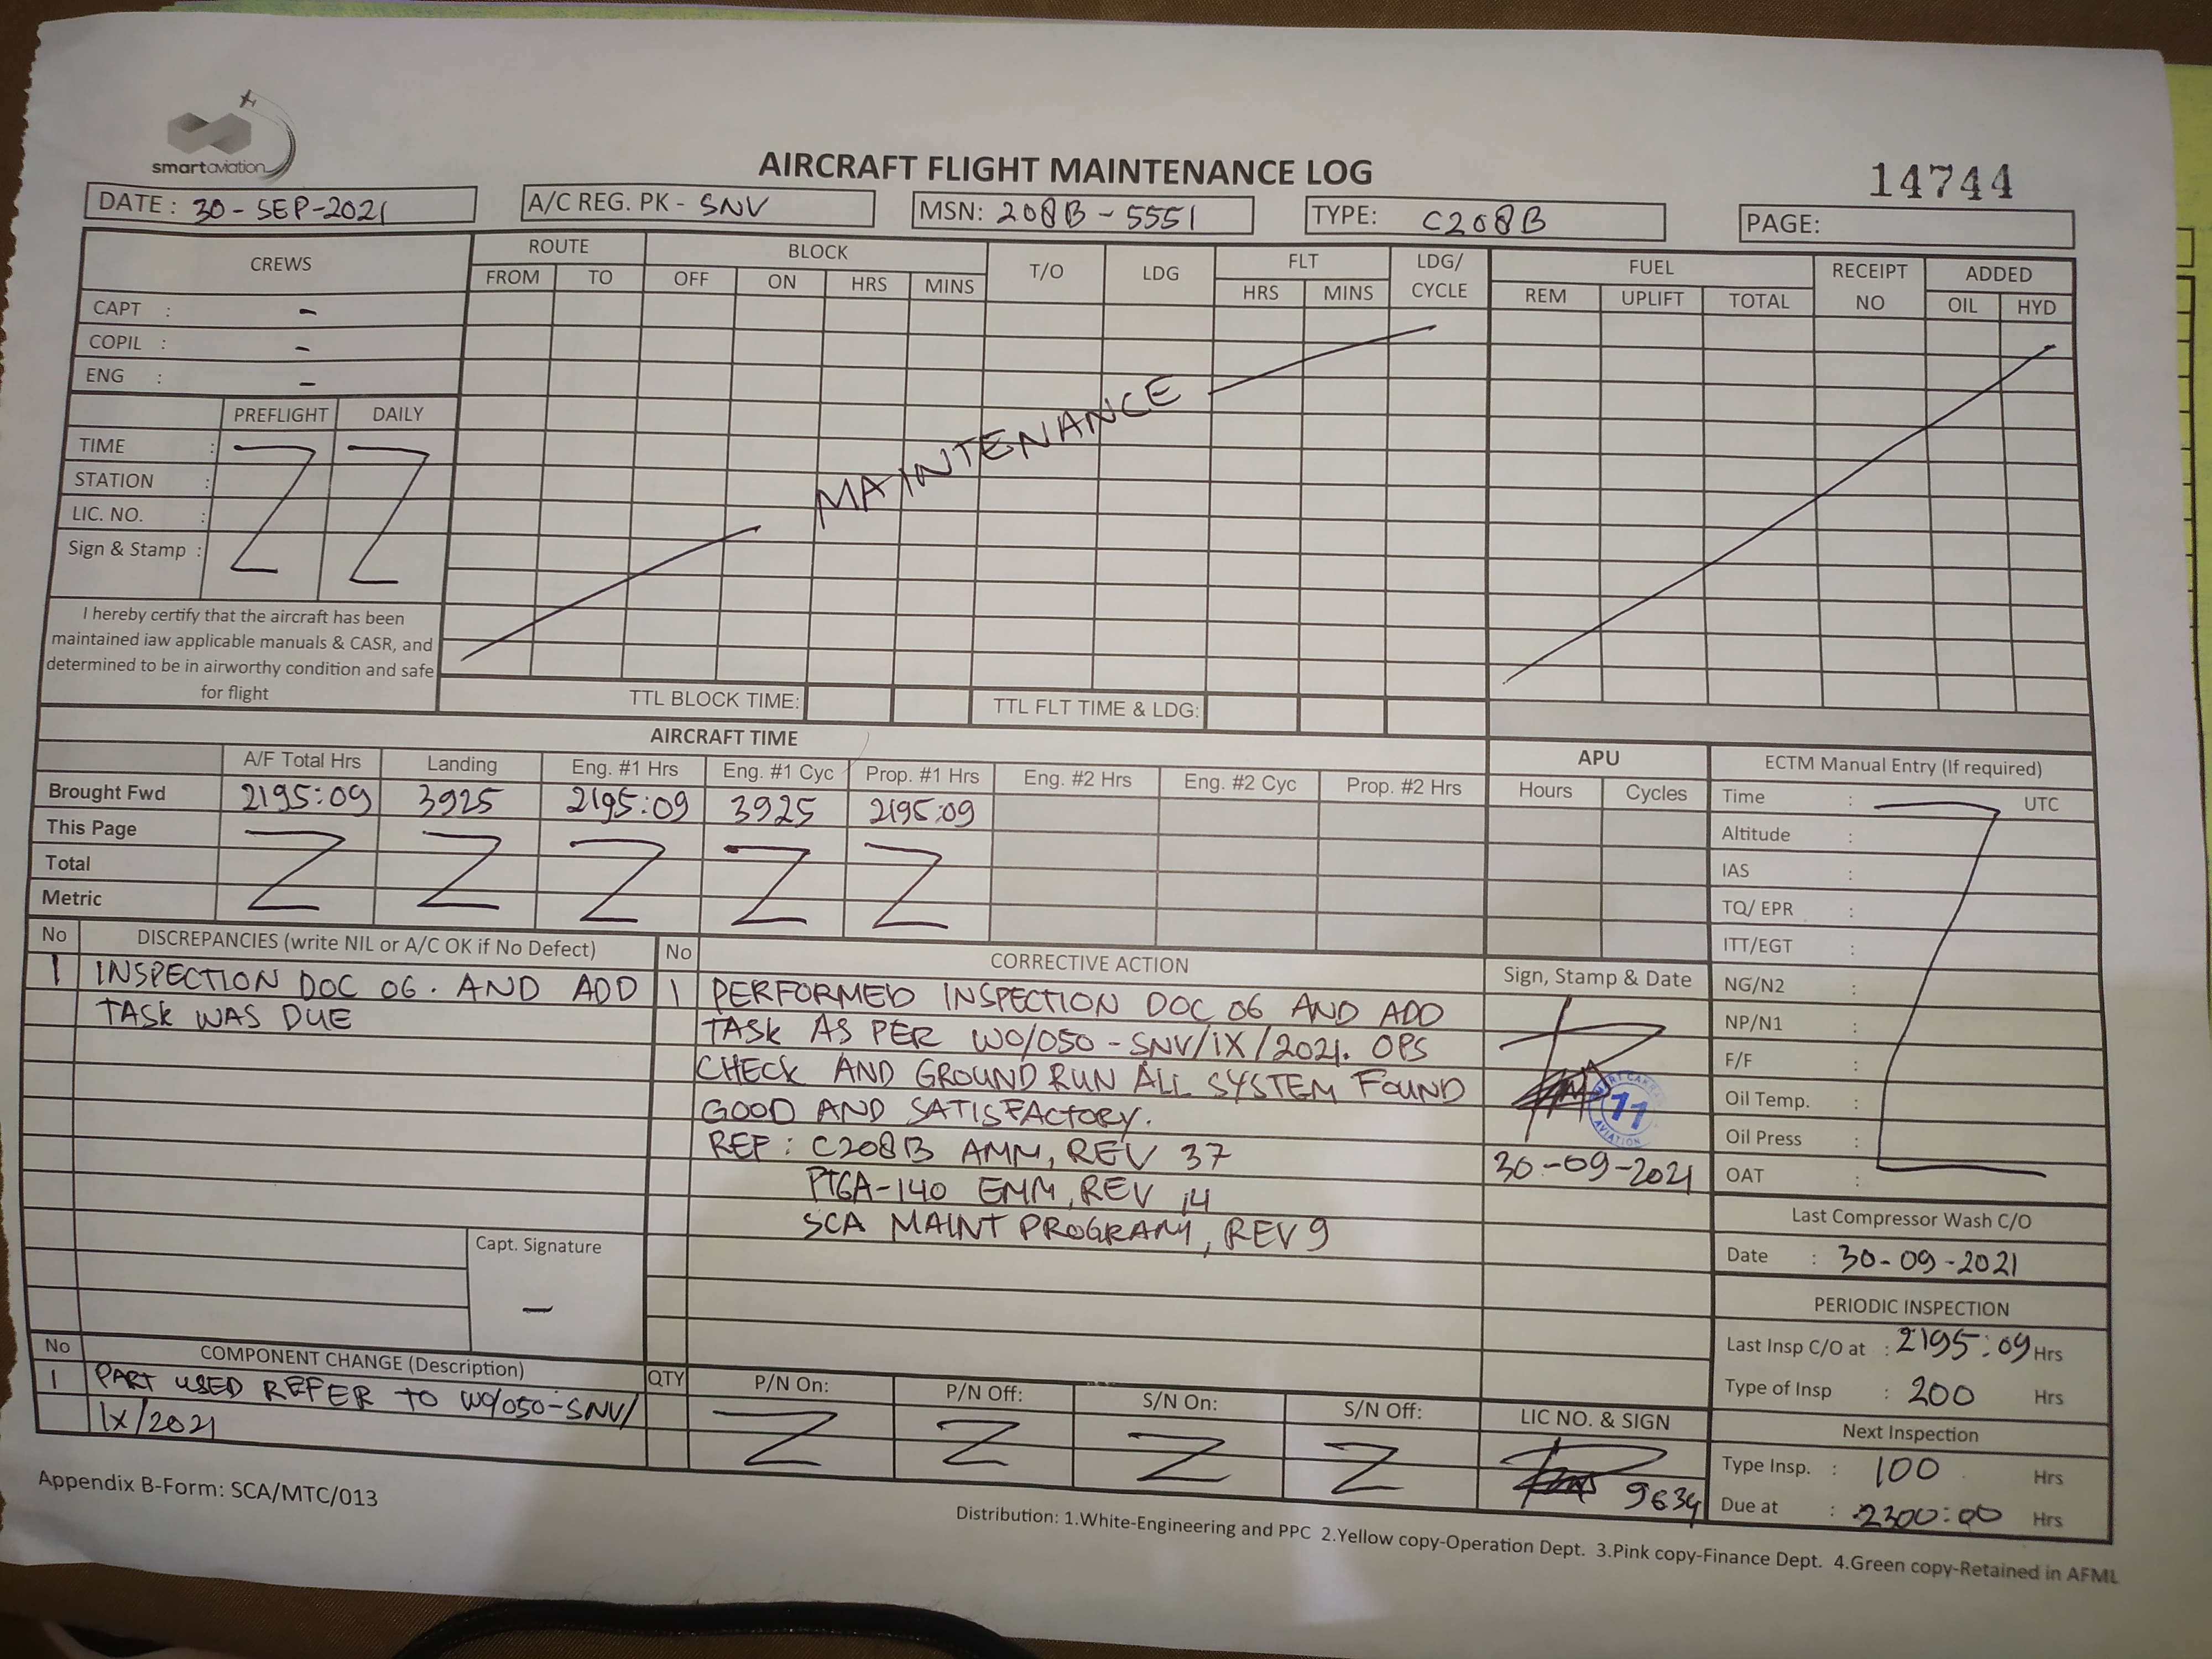 smartaviation
AIRCRAFT FLIGHT MAINTENANCE LOG
14744
DATE : 30 - SEP - 2021
A/C REG. PK - SNV
MSN: 208B - 5551
TYPE: C208B
PAGE:
CREWS
ROUTE
BLOCK
T/O
LDG
FLT
LDG/ CYCLE
FUEL
RECEIPT NO
ADDED
FROM TO OFF ON HRS MINS HRS MINS REM UPLIFT TOTAL OIL HYD
CAPT : -
COPIL : -
ENG : -
PREFLIGHT DAILY
TIME :
STATION :
LIC. NO. :
Sign & Stamp :
MAINTENANCE
I hereby certify that the aircraft has been
maintained iaw applicable manuals & CASR, and
determined to be in airworthy condition and safe
for flight
TTL BLOCK TIME:
TTL FLT TIME & LDG:
AIRCRAFT TIME
A/F Total Hrs Landing Eng. #1 Hrs Eng. #1 Cyc Prop. #1 Hrs Eng. #2 Hrs Eng. #2 Cyc Prop. #2 Hrs
Brought Fwd 2195:09 3925 2195:09 3925 2195:09
This Page
Total
Metric
APU
Hours Cycles
ECTM Manual Entry (If required)
Time : UTC
Altitude :
IAS :
TQ/ EPR :
ITT/EGT :
NG/N2 :
NP/N1 :
F/F :
Oil Temp. :
Oil Press :
OAT :
No DISCREPANCIES (write NIL or A/C OK if No Defect)
1 INSPECTION DOC 06. AND ADD
TASK WAS DUE
Capt. Signature
-
No CORRECTIVE ACTION
1 PERFORMED INSPECTION DOC 06 AND ADD
TASK AS PER WO/050 - SNV/IX/2021. OPS
CHECK AND GROUND RUN ALL SYSTEM FOUND
GOOD AND SATISFACTORY.
REF : C208B AMM, REV 37
PT6A-140 EMM, REV 14
SCA MAINT PROGRAM, REV 9
Sign, Stamp & Date
11
AVIATION
30-09-2021
Last Compressor Wash C/O
Date : 30-09-2021
PERIODIC INSPECTION
Last Insp C/O at : 2195:09 Hrs
Type of Insp : 200 Hrs
Next Inspection
Type Insp. : 100 Hrs
Due at : 2300:00 Hrs
No COMPONENT CHANGE (Description)
1 PART USED REFER TO WO/050-SNV/
IX/2021
QTY P/N On: P/N Off: S/N On: S/N Off: LIC NO. & SIGN
9634
Appendix B-Form: SCA/MTC/013
Distribution: 1.White-Engineering and PPC 2.Yellow copy-Operation Dept. 3.Pink copy-Finance Dept. 4.Green copy-Retained in AFML